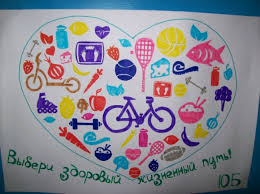 Выбери здоровый жизненный путь!
10Б